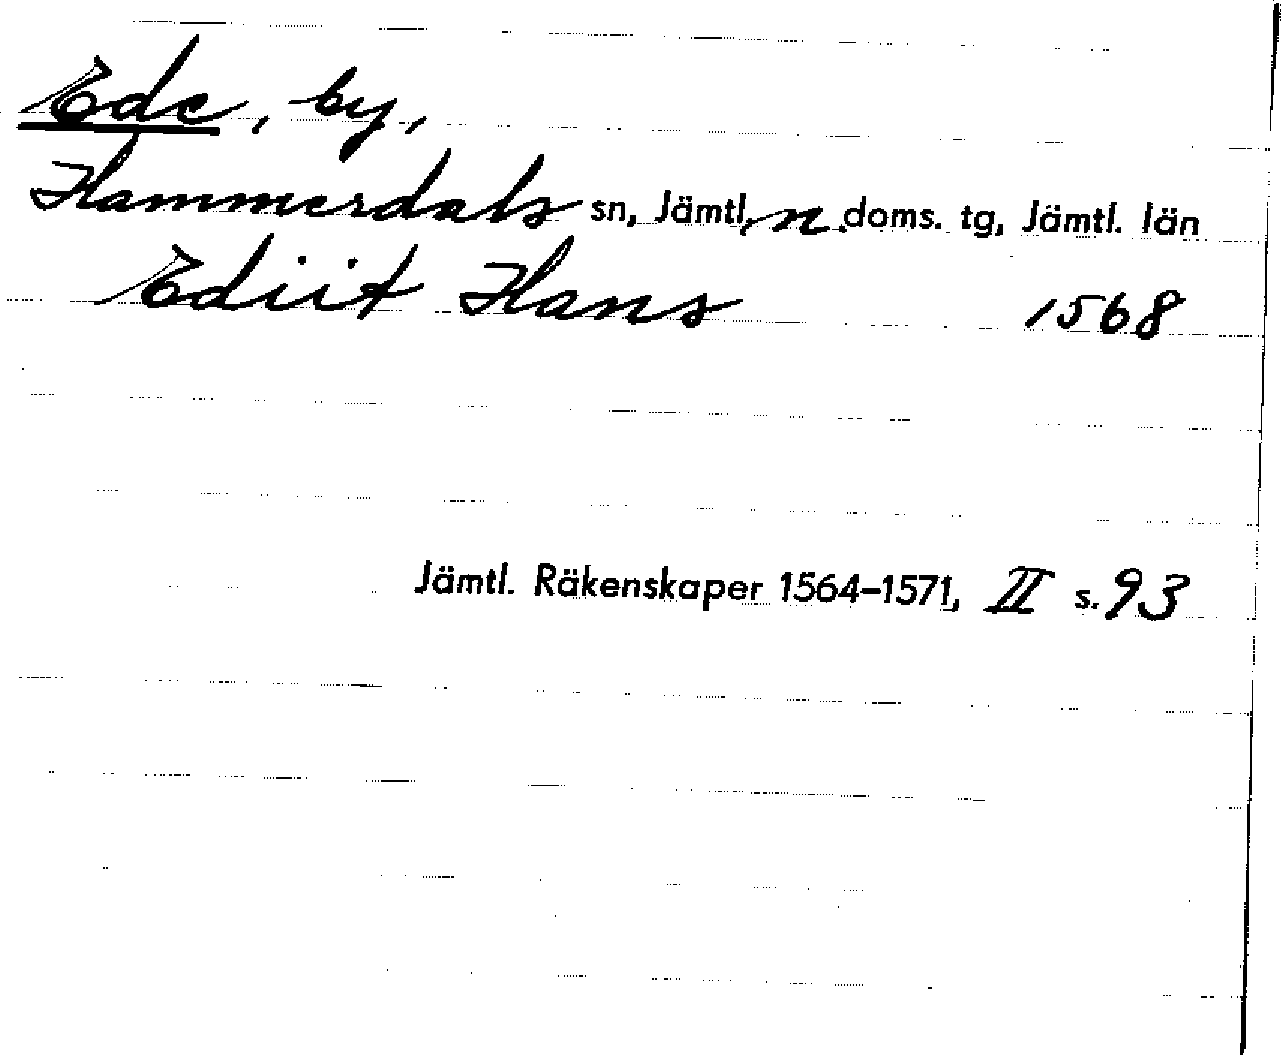 Ede, by,
Hammerdals sn, Jämtl. n. doms. tg, Jämtl. län
Ediit Hans 1568
Jämtl. Räkenskaper 1564-1571, II s. 93